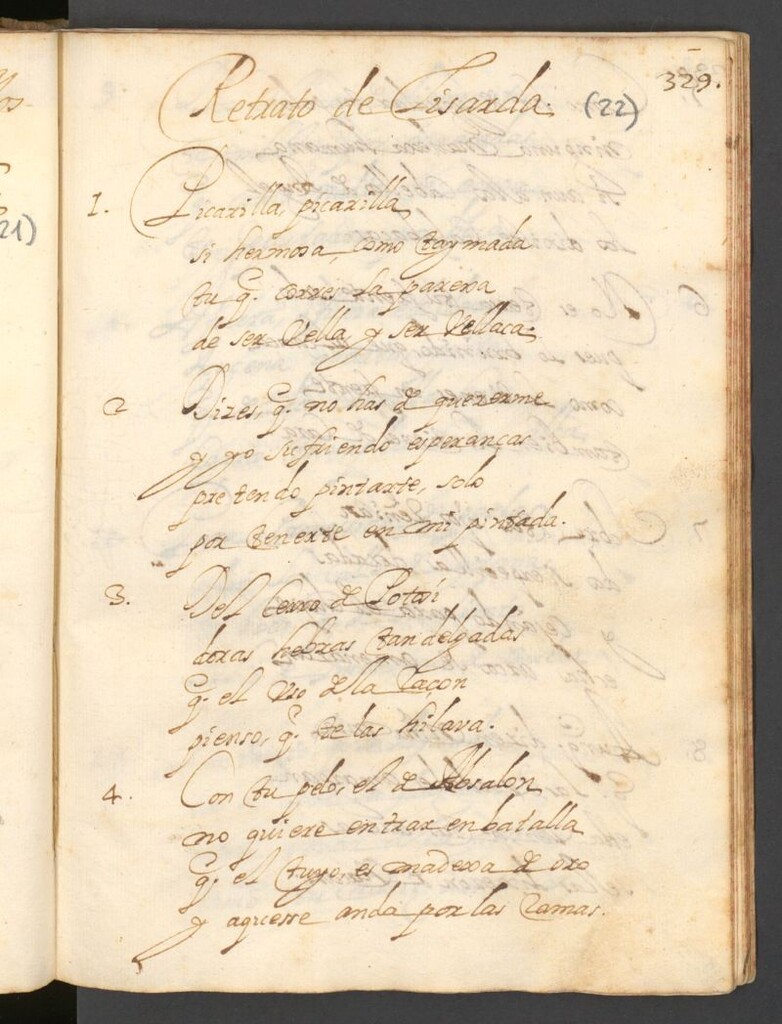 329.
Retrato de Tisarda. (22)
1. Picarilla, picarilla,
si hermosa como taymada
tu q. corres la parena
de ser Vella, y ser Vellaca.
2 Dizes, q. no has de quererme
y yo sufriendo esperanças
pretendo pintarte, solo
por tenerte en mi pintada.
3. Del cerro de Potosi
doras hebras tan delgadas
q. el uso de la raçon
pienso, q. te las hilava.
4. Con tu pelo, el de Absalon
no quiere entrar en batalla
q. el tuyo, es madexa de oro
y aquesse anda por las ramas.
21)